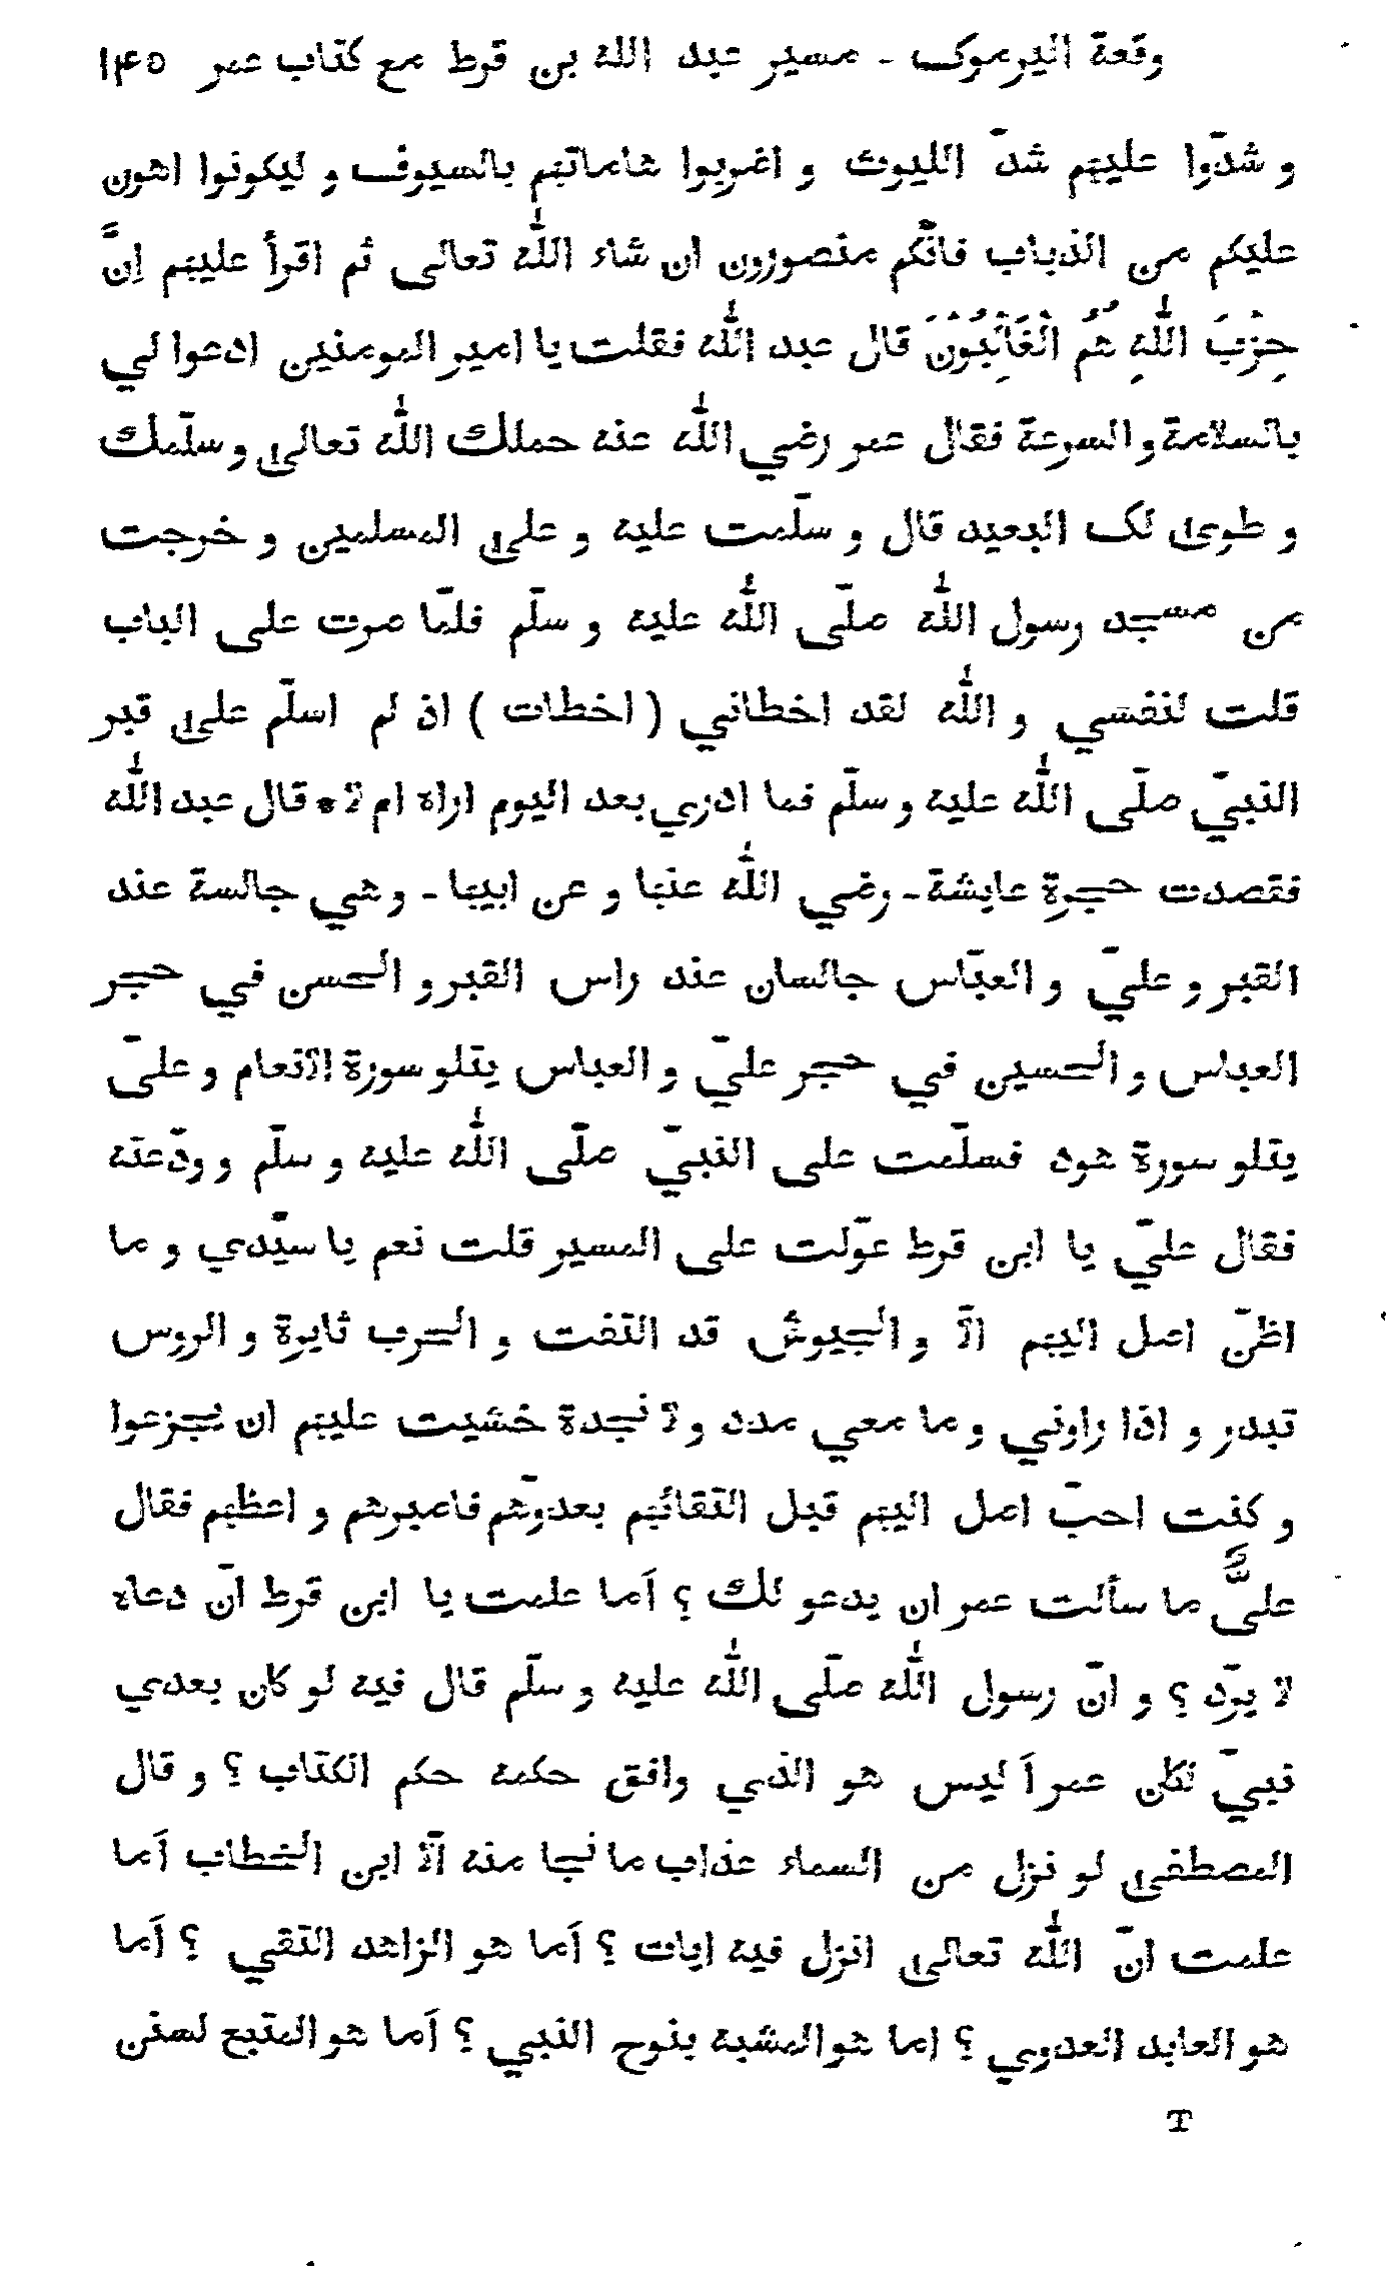 وقعة اليرموك - مسير عبد الله بن قرط مع كتاب عمر ١۴٥
و شدّوا عليهم شدّ الليوث و اضربوا هاماتهم بالسيوف و ليكونوا اهون
عليكم من الذباب فانّكم منصورون ان شاء اللّٰه تعالى ثم اقرأ عليهم اِنَّ
حِزْبَ اللّٰهِ هُمُ الْغَالِبُوْنَ قال عبد اللّٰه فقلت يا امير المومنين ادعوا لي
بالسلامة و السرعة فقال عمر رضي اللّٰه عنه حملك اللّٰه تعالى و سلّمك
و طوى لك البعيد قال و سلّمت عليه و على المسلمين و خرجت
من مسجد رسول اللّٰه صلّى اللّٰه عليه و سلّم فلمّا صرت على الباب
قلت لنفسي و اللّٰه لقد اخطاني ( اخطات ) ان لم اسلّم على قبر
النبيّ صلّى اللّٰه عليه و سلّم فما ادري بعد اليوم اراه ام لا * قال عبد اللّٰه
فقصدت حجرة عايشة - رضي اللّٰه عنها و عن ابيها - و هي جالسة عند
القبر و عليّ و العبّاس جالسان عند راس القبر و الحسن في حجر
العباس و الحسين في حجر عليّ و العباس يتلو سورة الانعام و عليّ
يتلو سورة هود فسلّمت على النبيّ صلّى اللّٰه عليه و سلّم و ودّعته
فقال عليّ يا ابن قرط عوّلت على المسير قلت نعم يا سيّدي و ما
اظنّ اصل اليهم الّا و الجيوش قد التقت و الحرب ثايرة و الروس
تبدر و اذا راوني و ما معي مدد و لا نجدة خشيت عليهم ان يجزعوا
و كنت احبّ اصل اليهم قبل التقائهم بعدوّهم فاصبرهم و اعظهم فقال
عليٌّ ما سألت عمر ان يدعو لك ؟ اَما علمت يا ابن قرط انّ دعاه
لا يردّ ؟ و انّ رسول اللّٰه صلّى اللّٰه عليه و سلّم قال فيه لو كان بعدي
نبيّ لكان عمر اَ ليس هو الذي وافق حكمه حكم الكتاب ؟ و قال
المصطفى لو نزل من السماء عذاب ما نجا منه الّا ابن الخطاب اَما
علمت انّ اللّٰه تعالى انزل فيه ايات ؟ اَما هو الزاهد التقي ؟ اَما
هو العابد العدوي ؟ اما هو المشبه بنوح النبي ؟ اَما هو المتبع لسنن
T